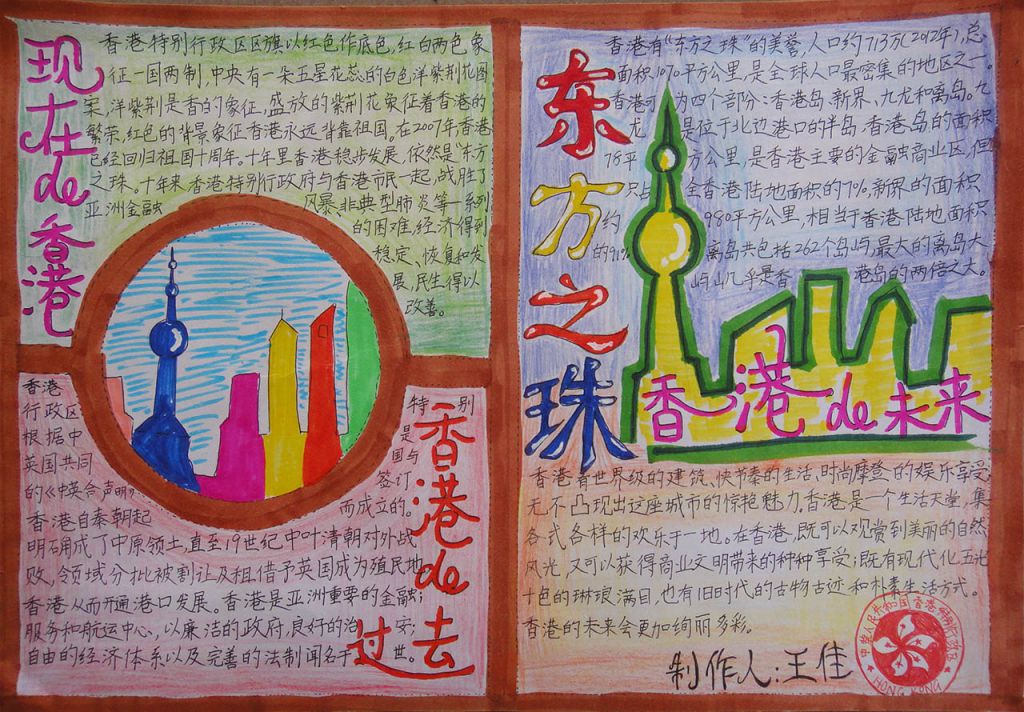 现在de香港
香港特别行政区区旗以红色作底色,红白两色,象
征一国两制,中央有一朵五星花蕊的白色洋紫荆花图
案,洋紫荆是香的象征,盛放的紫荆花象征着香港的
繁荣,红色的背景象征香港永远背靠祖国。在2007年,香港
已经回归祖国十周年。十年里香港稳步发展,依然是“东方
之珠。十年来香港特别行政府与香港市民一起,战胜了
亚洲金融风暴、非典型肺炎等一系列
的困难,经济得到
稳定、恢复和发
展,民生得以
改善。
香港特别
行政区是
根据中国与
英国共同签订
的《中英合声明》而成立的。
香港自秦朝起
明确成了中原领土,直至19世纪中叶清朝对外战
败,领域分批被割让及租借予英国成为殖民地
香港从而开遍港口发展。香港是亚洲重要的金融;
服务和航运中心,以廉洁的政府,良好的治安;
自由的经济体系以及完善的法制闻名于世。
香港de过去
东方之珠
香港有“东方之珠”的美誉,人口约713万(2012年),总
面积1070平方公里,是全球人口最密集的地区之一。
香港可为四个部分:香港岛、新界、九龙和离岛。九
龙是位于北边港口的半岛,香港岛的面积
76平方公里,是香港主要的金融商业区,但
只占全香港陆地面积的7%,新界的面积
约980平方公里,相当于香港陆地面积
的91%离岛共包括262个岛屿,最大的离岛大
屿山几乎是香港岛的两倍之大。
香港de未来
香港有世界级的建筑、快节奏的生活,时尚摩登的娱乐享受;
无不凸现出这座城市的惊艳魅力。香港是一个生活天堂,集
各式各样的欢乐于一地。在香港,既可以观赏到美丽的自然
风光,又可以获得商业文明带来的种种享受;既有现代化五光
十色的琳琅满目,也有旧时代的古物古迹和朴素生活方式。
香港的未来会更加绚丽多彩。
制作人:王佳
中华人民共和国香港特别行政区
HONG KONG